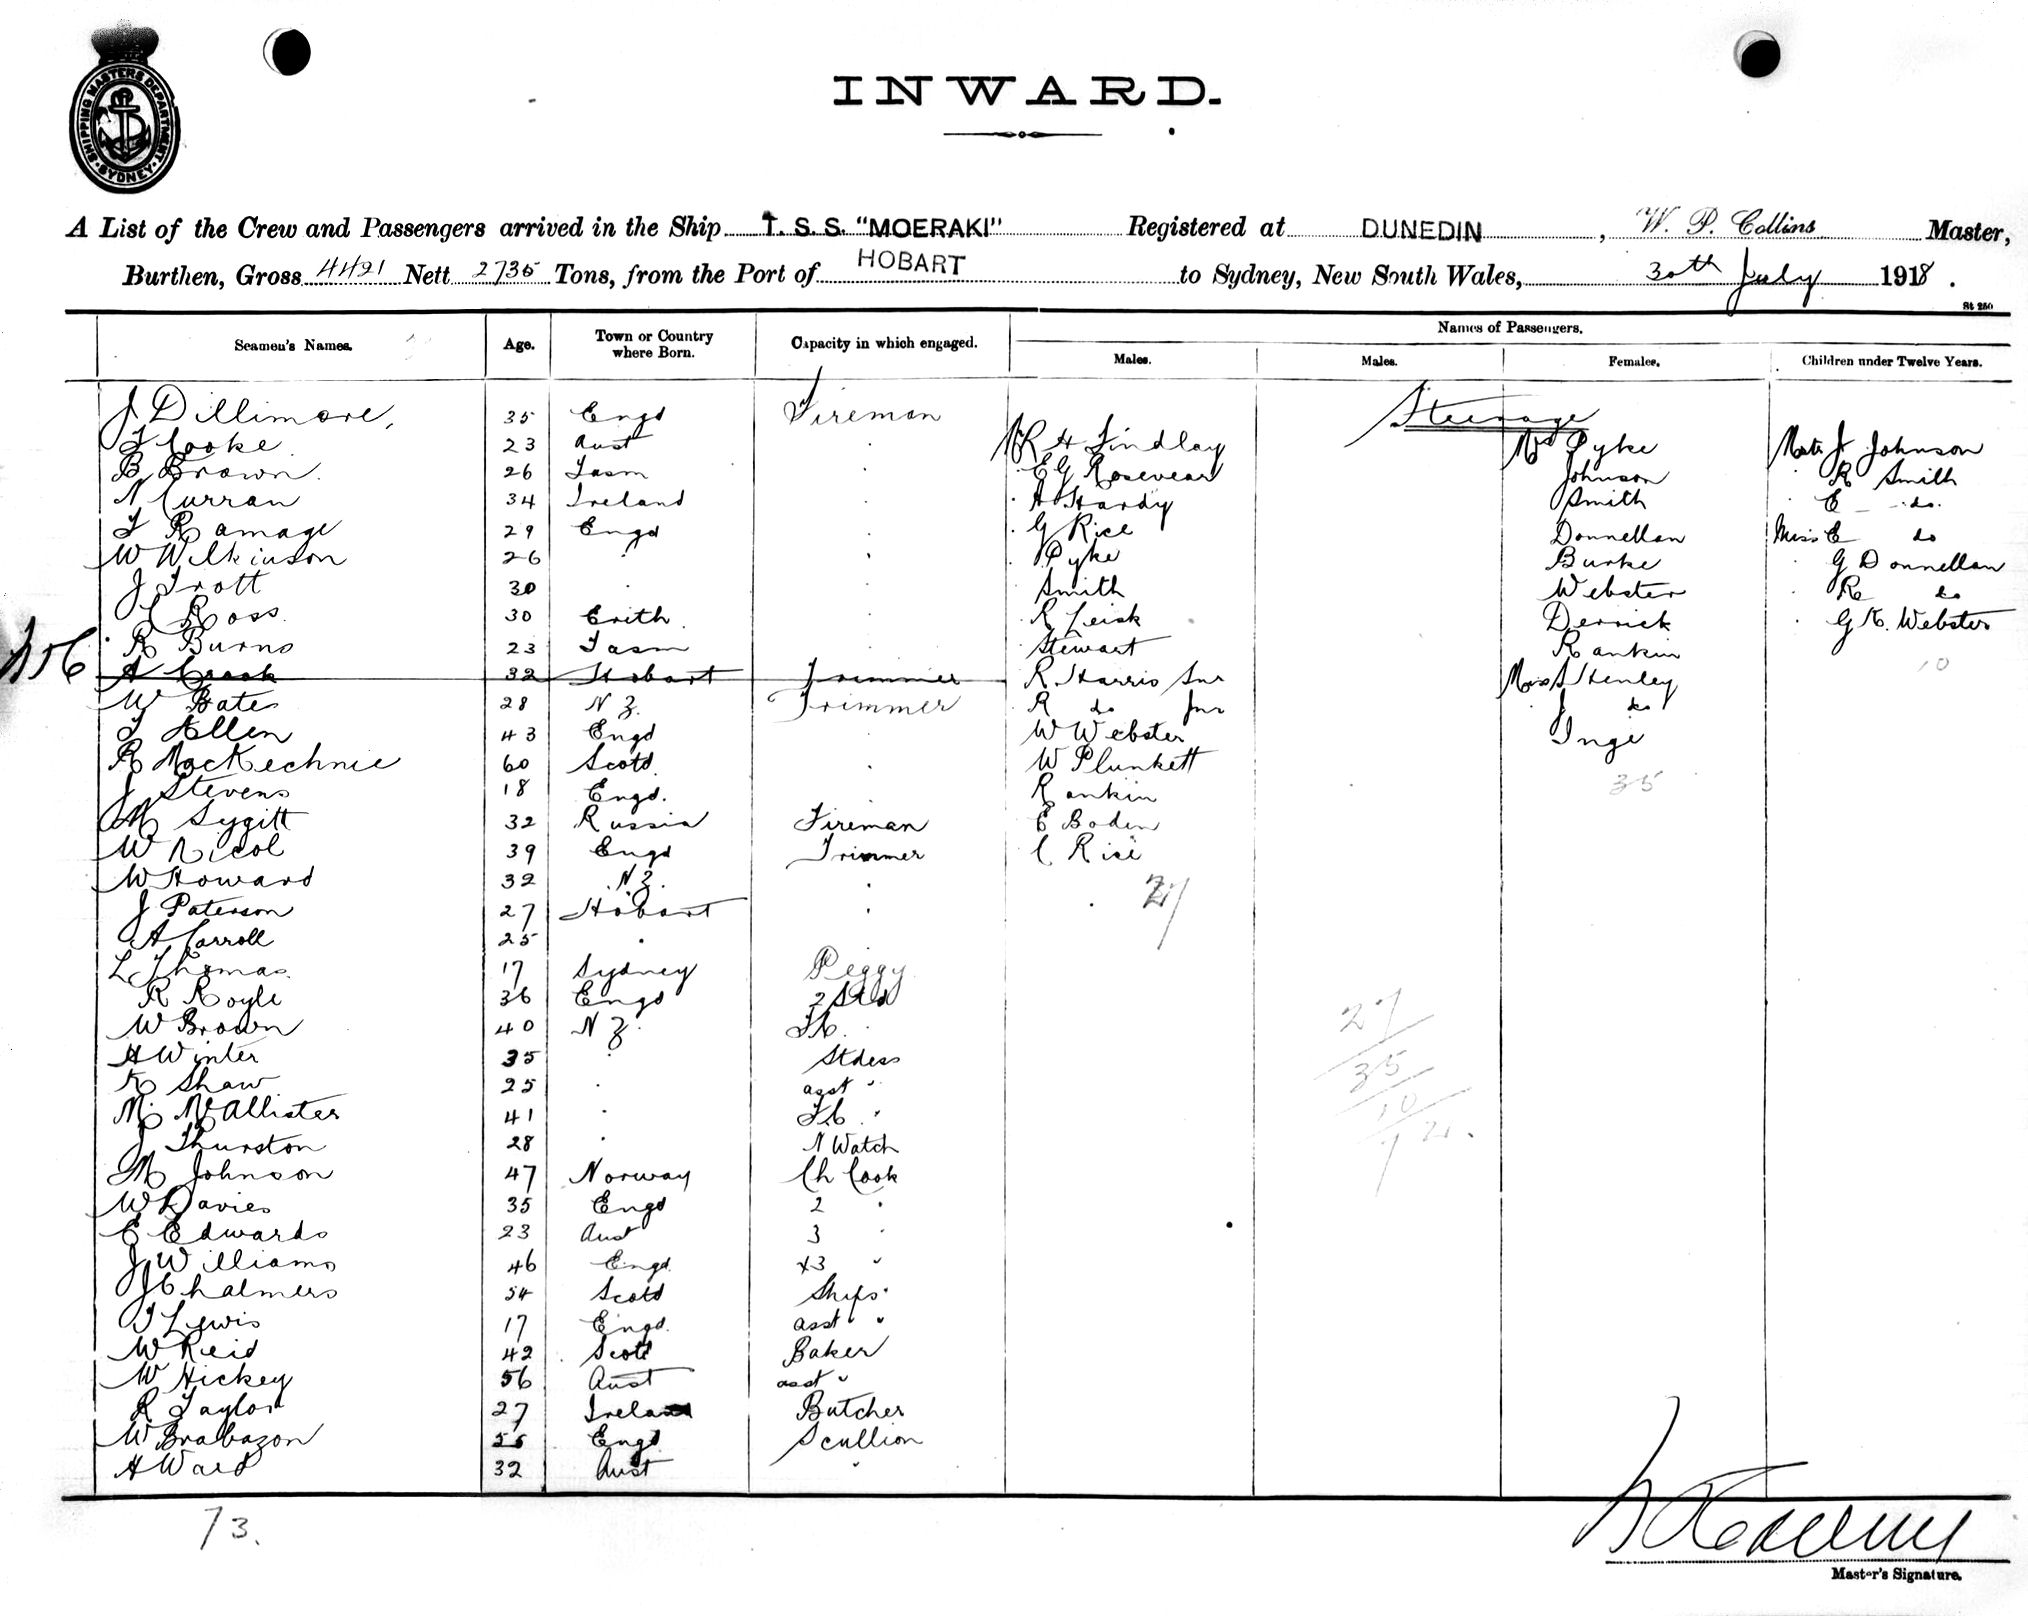 SHIPPING MASTERS DEPARTMENT SYDNEY
INWARD.
A List of the Crew and Passengers arrived in the Ship T. S. S. "MOERAKI" Registered at DUNEDIN, W. P. Collins Master,
Burthen, Gross 4421 Nett 2735 Tons, from the Port of HOBART to Sydney, New South Wales, 30th July 1918.
St 250
Seamen's Names. Age. Town or Country where Born. Capacity in which engaged. Names of Passengers.
Males. Males. Females. Children under Twelve Years.
Steerage
J Dillimore, 35 Engd Fireman
T Cooke 23 Aust . Mr R H Findlay Mrs Pyke Mastr J Johnson
B Brown. 26 Tasm . E G Rosevear Johnson R Smith
N Curran 34 Ireland . A Hardy Smith E do.
T Ramage 29 Engd . G Rice Donnellan Miss E do
W Wilkinson 26 . . Pyke Burke G Donnellan
J Trott 30 . . Smith Webster R do
Ross 30 Erith . R Leisk Derrick G K. Webster
R Burns 23 Tasm . Stewart Rankin 10
A Crook 32 Hobart Trimmer R Harris Snr Miss S Henley
W Bates 28 N Z. Trimmer R do Jnr J do
T Allen 43 Engd . W Webster Inge
R MacKechnie 60 Scotd . W Plunkett 35
J Stevens 18 Engd. . Rankin
M Sygitt 32 Russia Fireman E Boden
W Nicol 39 Engd Trimmer C Rice
W Howard 32 N Z. . 27
J Paterson 27 Hobart .
A Carroll 25 . .
L Thomas 17 Sydney Peggy
R Royle 36 Engd 2 Std
W Brown 40 N Z. F.C. 27
H Winter 35 . Stdess 35
K Shaw 25 . asst " 10
M McAllister 41 . F.C. " 72.
J Thurston 28 . N Watch
M Johnson 47 Norway Ch Cook
W Davies 35 Engd 2 "
E Edwards 23 Aust 3 "
J Williams 46 Engd. x3 "
J Chalmers 54 Scotd Ships "
T Lewis 17 Engd. asst " "
W Reid 42 Scotd Baker
W Hickey 56 Aust asst "
R Taylor 27 Ireland Butcher
W Brabazon 55 Engd Scullion
H Ward 32 Aust "
73.
Master's Signature.